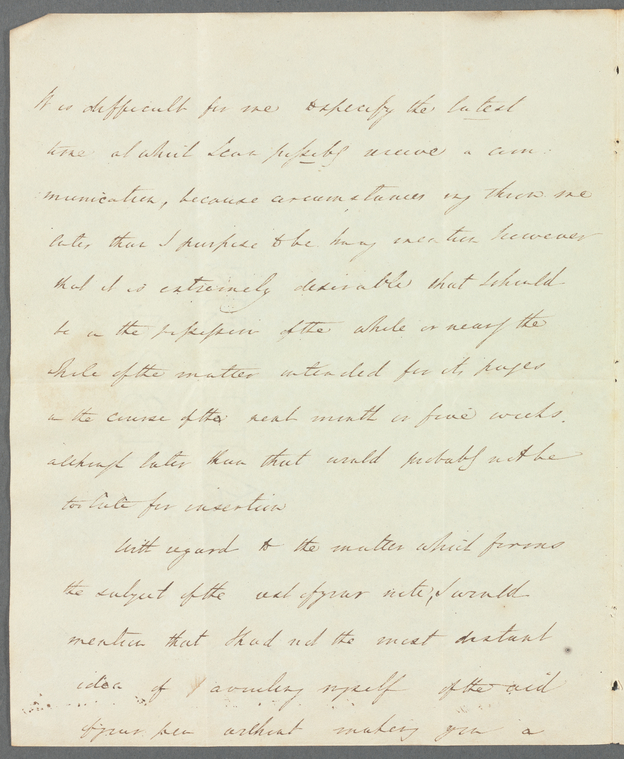 It is difficult for me to specify the latest
time at which I can possibly receive a com-
munication, because circumstances may throw me
later than I purpose to be. I may mention however
that it is extremely desirable that I should
be in the possession of the whole or nearly the
whole of the matter intended for its pages
in the course of the next month or five weeks.
although later than that would probably not be
too late for insertion
With regard to the matter which forms
the subject of the rest of your note, I would
mention that I had not the most distant
idea of availing myself of the aid
of your pen without making you a